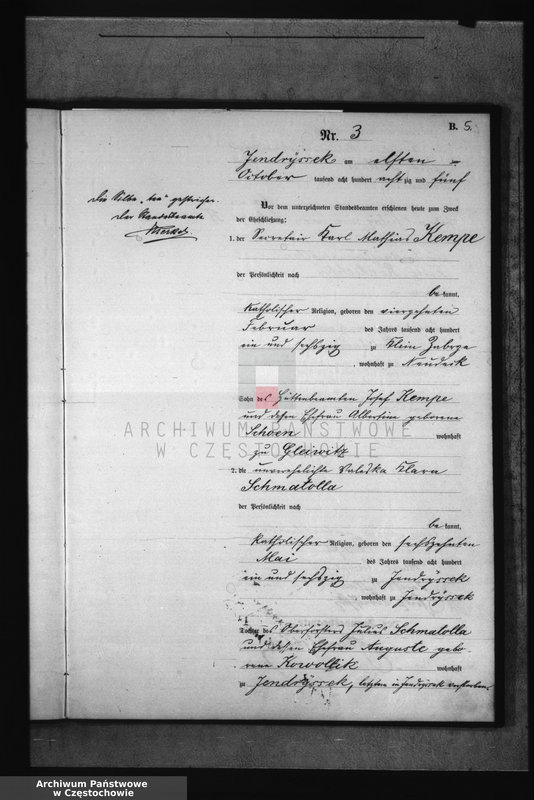 B. 5.
Nr. 3
Jendryssek am elften
October tausend acht hundert acht zig und fünf
Die Silbe "ten" gestrichen.
Der Standesbeamte
Vor dem unterzeichneten Standesbeamten erschienen heute zum Zweck
der Eheschließung:
1. der Secretair Karl Mathias Kempe
der Persönlichkeit nach
be kannt,
Katholischer Religion, geboren den vierzehnten
Februar des Jahres tausend acht hundert
ein und sechszig zu Klein Zabrze
, wohnhaft zu Neudeck
Sohn des Hüttenbeamten Josef Kempe
und dessen Ehefrau Albertine geborene
Schoen wohnhaft
zu Gleiwitz
2. die unverehelichte Valeska Klara
Schmatolla
der Persönlichkeit nach
be kannt,
Katholischer Religion, geboren den sechszehnten
Mai des Jahres tausend acht hundert
ein und sechszig zu Jendryssek
, wohnhaft zu Jendryssek
Tochter des Oberförsters Julius Schmatolla
und dessen Ehefrau Auguste gebo
rene Kowollik wohnhaft
zu Jendryssek, letztere in Jendryssek verstorben
ARCHIWUM PAŃSTWOWE
W CZĘSTOCHOWIE
Archiwum Państwowe
w Częstochowie